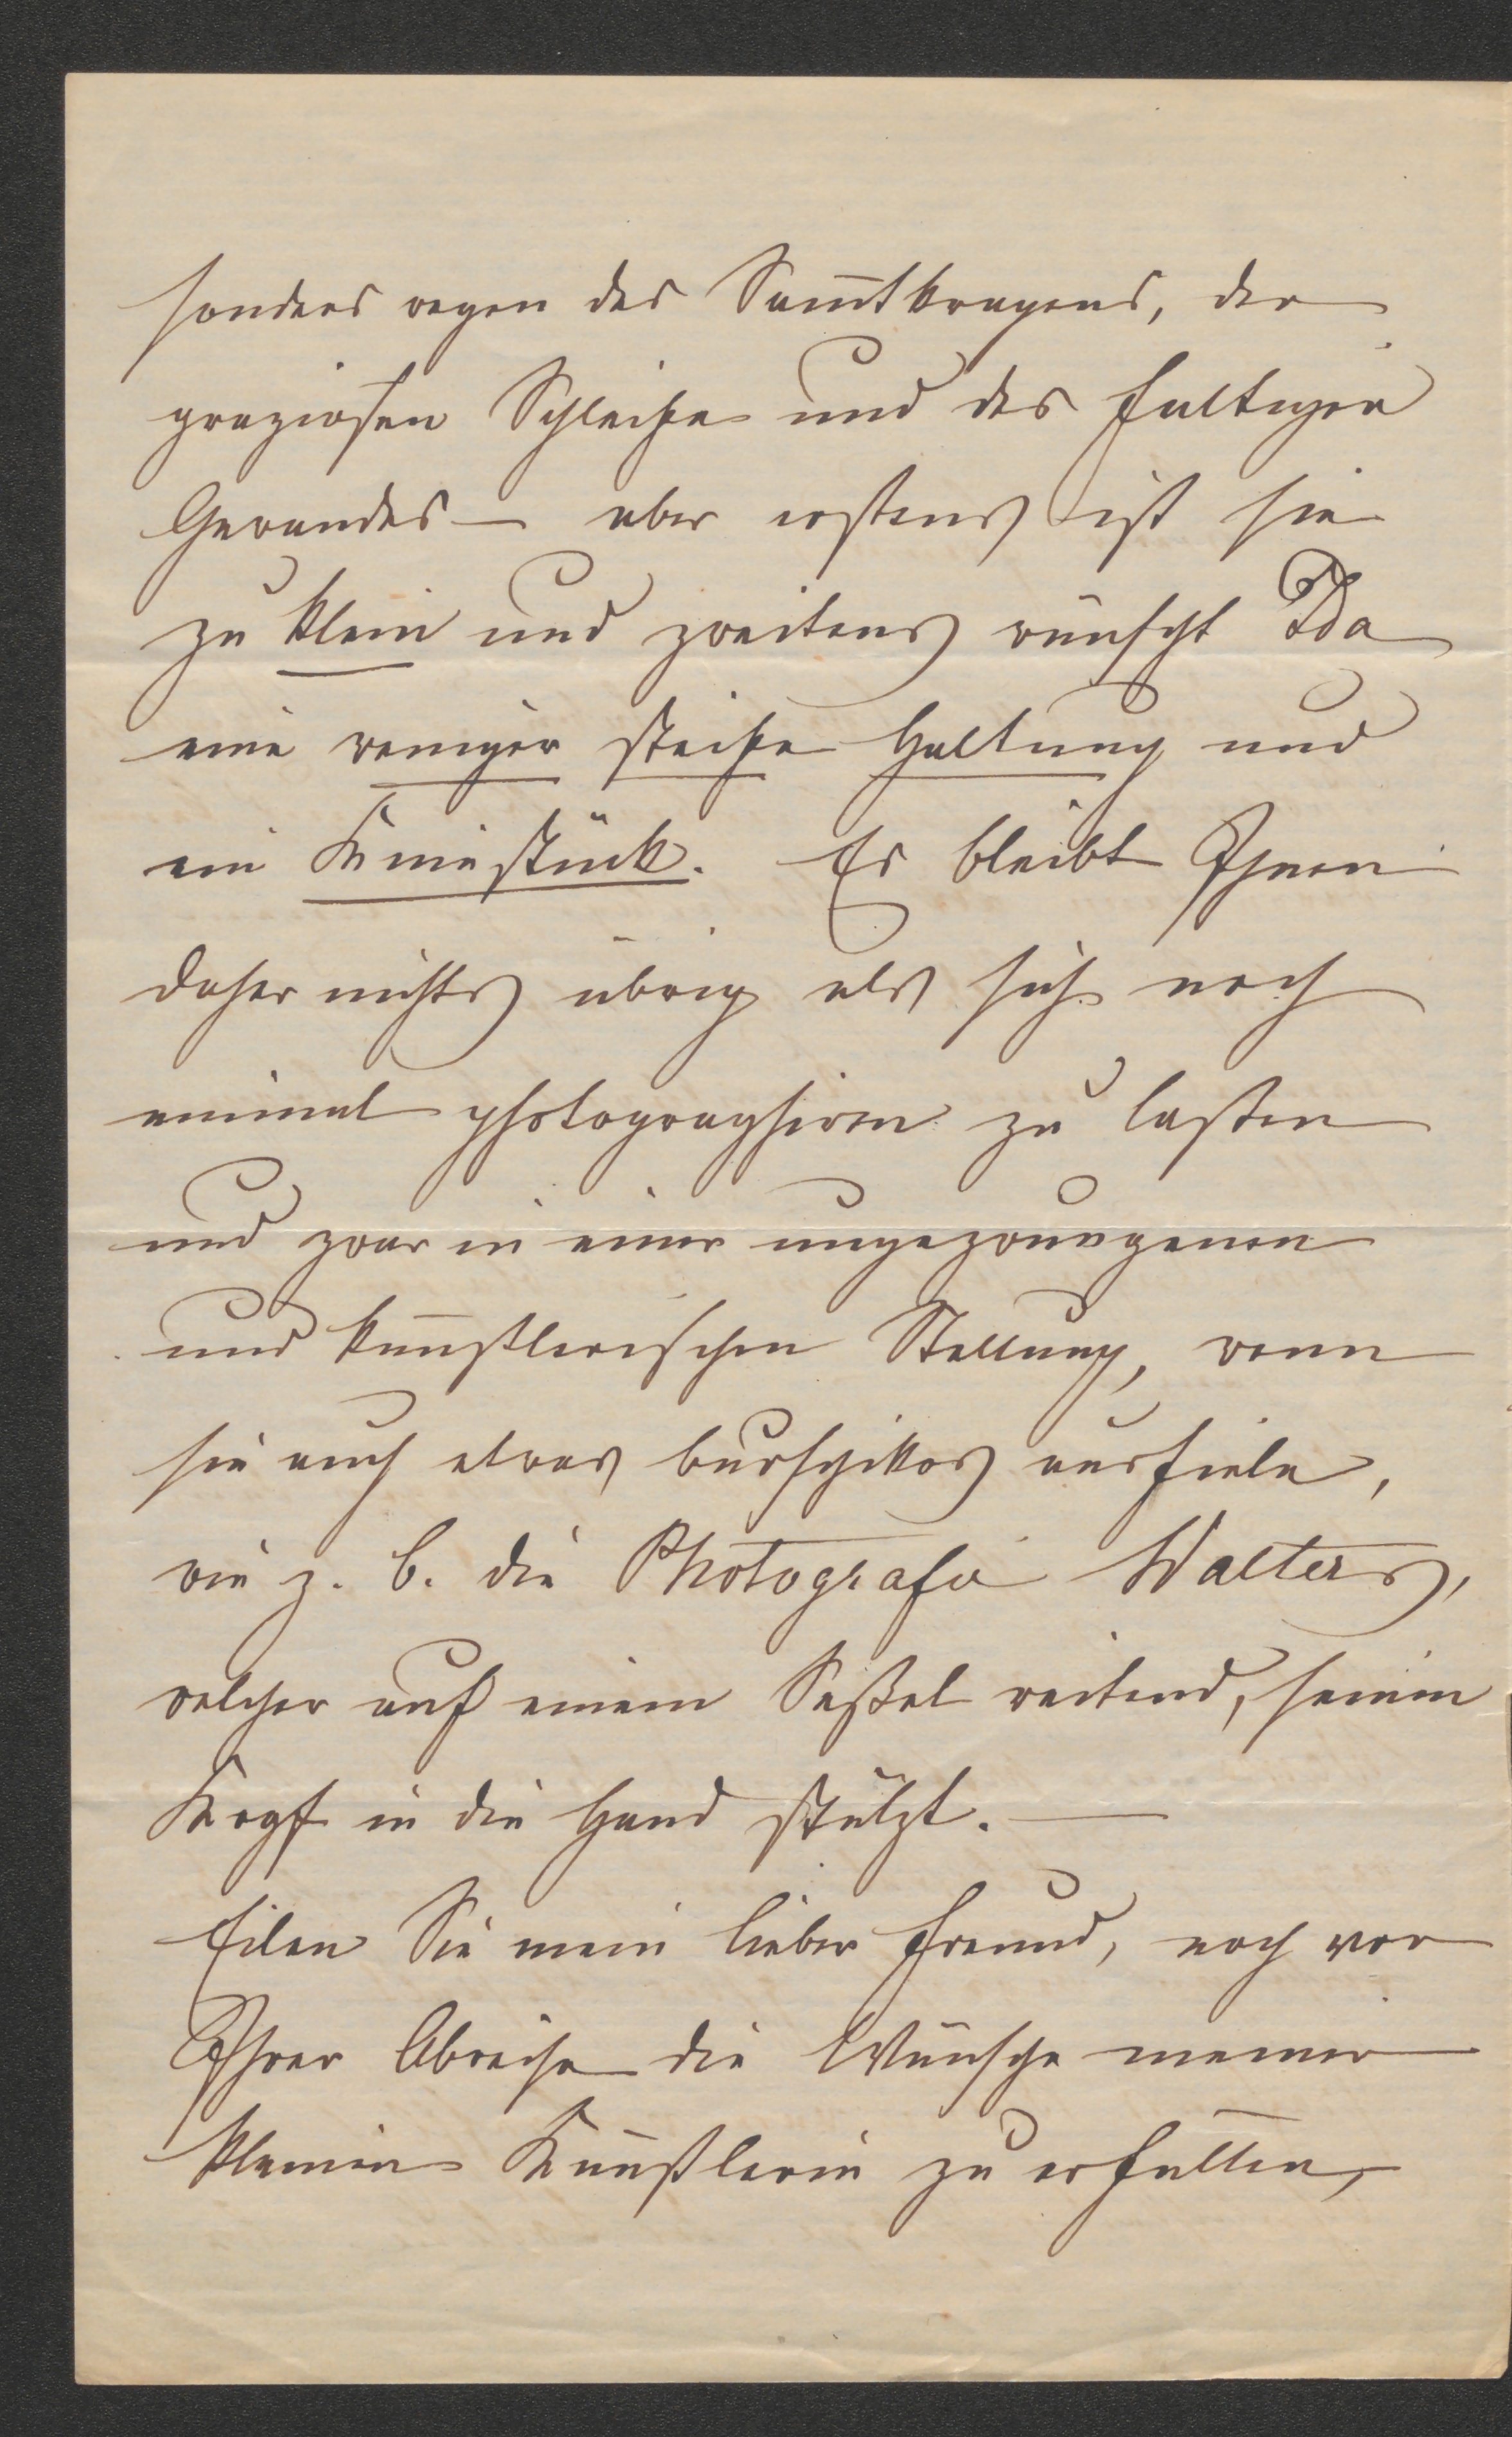 sonders wegen des Sam̅tkragens, der
graziosen Schleife und des faltigen
Gewandes — aber erstens ist sie
zu klein und zweitens wünscht Ida
eine weniger steife Haltung und
ein Kniestück. Es bleibt Ihnen
daher nichts übrig als sich noch
einmal photographiren zu lassen
und zwar in einer ungezwungenen
und künstlerischen Stellung, wenn
sie auch etwas burschikos ausfiele,
wie z. B. die Photografie Walters,
welcher auf einem Seßel reitend, seinen
Kopf in die Hand stützt. —
Eilen Sie mein lieber Freund, noch vor
Ihrer Abreise die Wünsche meiner
kleinen Künstlerin zu erfüllen,